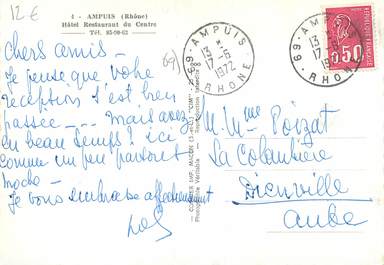 12€
1 - AMPUIS (Rhône)
Hôtel Restaurant du Centre
Tél. 85-90-62
69)
Chers amis -
Je pense que votre
réception s'est bien
passée --- mais avez
eu beau temps? ici
comme un peu partout
moche -
Je vous embrasse affectueusement
69 - AMPUIS
13 H
17-6
1972
RHONE
69 - AMPUIS
13 H
17-6
RHONE
REPUBLIQUE FRANÇAISE
0,50
COMBIER IMP. MACON (S.-et-L.) "CIM"
Photographie Véritable - Reproduction interdite
M. Mme Poizat
La Colombière
Dienville
Aube